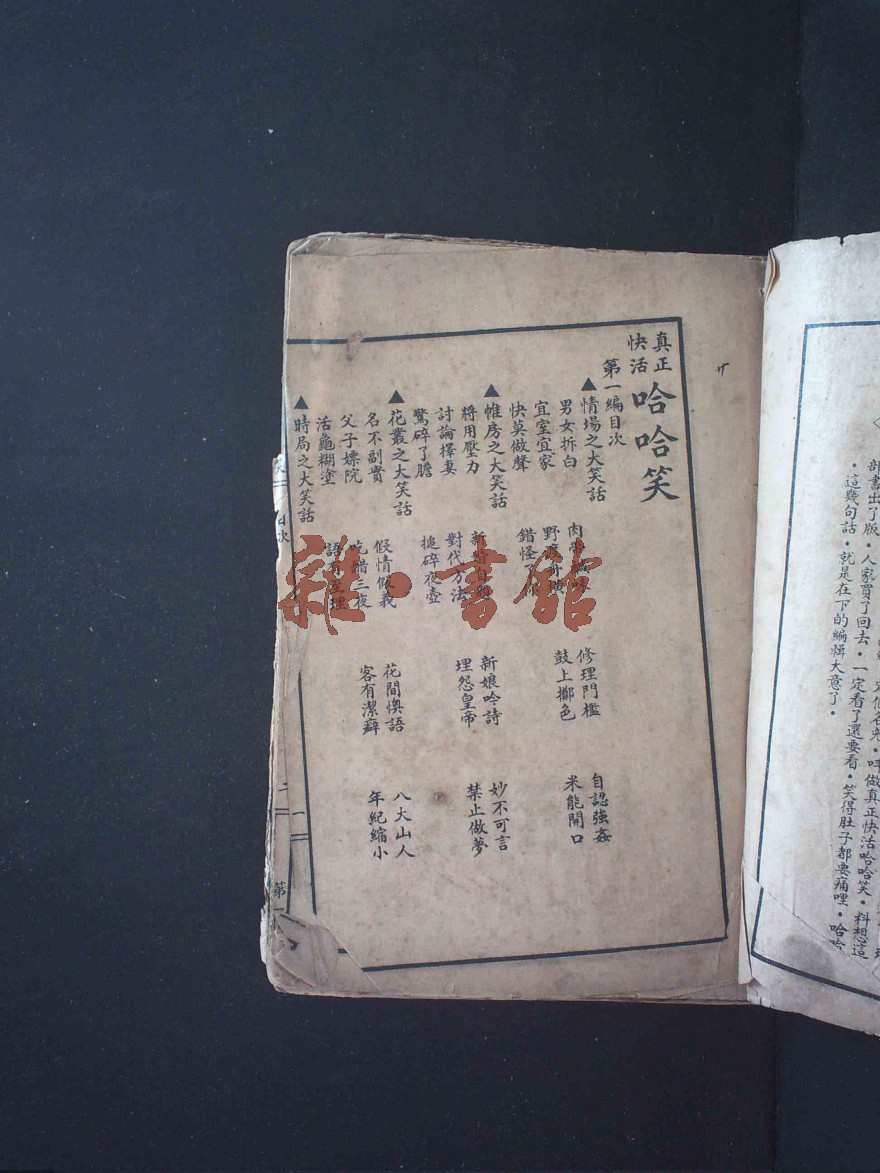 部書出了版・人家買了回去・一定看了還要看・笑得肚子都要痛哩・哈哈
・這幾句話・就是在下的編輯大意了・
真正快活 哈哈笑
第一編目次
▲情場之大笑話
男女拆白 肉 修理門檻 自認強姦
宜室宜家 野渡 鼓上擲色 米能開口
快莫做聲 錯怪
▲帷房之大笑話
將用壓力 新 新娘吟詩 妙不可言
討論擇妻 對代方法 埋怨皇帝 禁止做夢
驚碎了膽 搥碎夜壺
▲花叢之大笑話
名不副實 假情假義 花間懊語 八大山人
父子嫖院 吃醋三夜 客有潔癖 年紀縮小
活龜糊塗 語 理
▲時局之大笑話
目次
一
第一
雜・書館